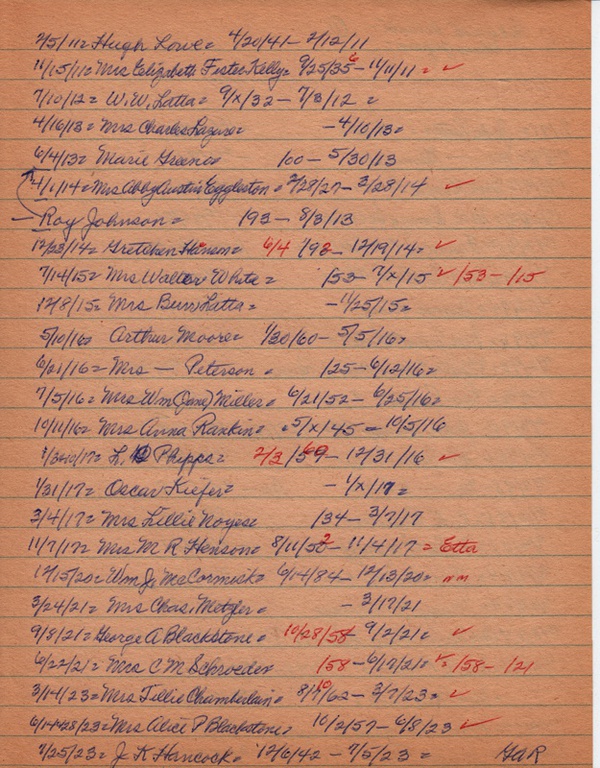 2/5/11 = Hugh Lowe = 4/20/41 - 2/12/11
11/15/11 = Mrs Elizabeth Foster Kelly = 9/25/35 - 11/11/11 = ✓
7/10/12 = W. W. Latta = 9/x/32 - 7/3/12 =
4/16/13 = Mrs Charles - 4/10/13 =
6/4/13 = Marie Greeno = /00 - 5/30/13
4/1/14 = Mrs Abby Austin Eggleston = 2/28/27 - 3/28/14 ✓
Roy Johnson = /93 - 8/3/13
12/28/14 = Gretchen = 6/4 /98 - 12/19/14 = ✓
7/14/15 = Mrs Walter White = /53 - 7/x/15 ✓ /53 - /15
12/8/15 = Mrs Burr Latta = - 11/25/15 =
5/10/16 = Arthur Moore = 1/30/60 - 5/5/16 =
6/21/16 = Mrs — Peterson = /25 - 6/12/16 =
7/5/16 = Mrs Wm (Jane) Miller = 6/21/52 - 6/25/16 =
10/11/16 = Mrs Anna Rankin = 5/x/45 - 10/5/16
L. Phipps = 2/3 - 12/31/16 ✓
1/31/17 = Oscar Kiefer = - 1/x/17 =
3/4/17 = Mrs Lillie Noyes = /34 - 3/7/17
11/7/17 = Mrs M R Henson = 8/11/ - 11/4/17 = Etta
12/15/20 = Wm J. McCormick = 6/14/84 - 12/13/20 =
3/24/21 = Mrs Chas. Metzger = - 3/17/21
9/8/21 = George A Blackstone = 10/28/58 - 9/2/21 = ✓
6/22/21 = Mrs C M Schroeder /58 - 6/17/21 = ✓ = /58 - /21
3/14/23 = Mrs Tillie Chamberlain = /62 - 3/7/23 = ✓
6/14+28/23 = Mrs Alice P Blackstone = 10/2/57 - 6/8/23 ✓
7/25/23 = J. K Hancock = 12/6/42 - 7/5/23 = GAR